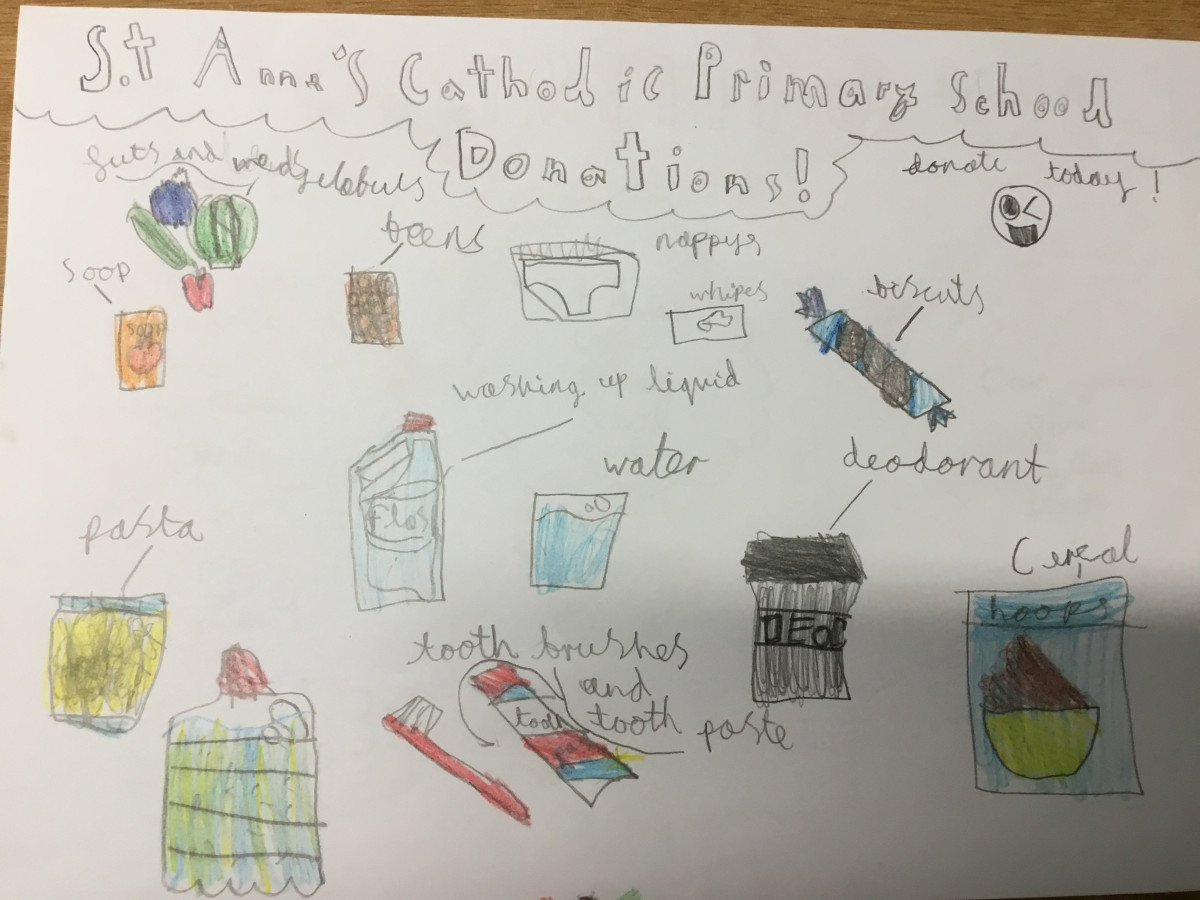 S.t Anna's Catholic Primary School
Donations!
donate today!
futs and
beens
nappys
soop
soap
whipes
biscuts
washing up liquid
Flas
water
deodorant
DEO
pasta
Cereal
hoops
tooth brushes
and
tooth paste
tooth